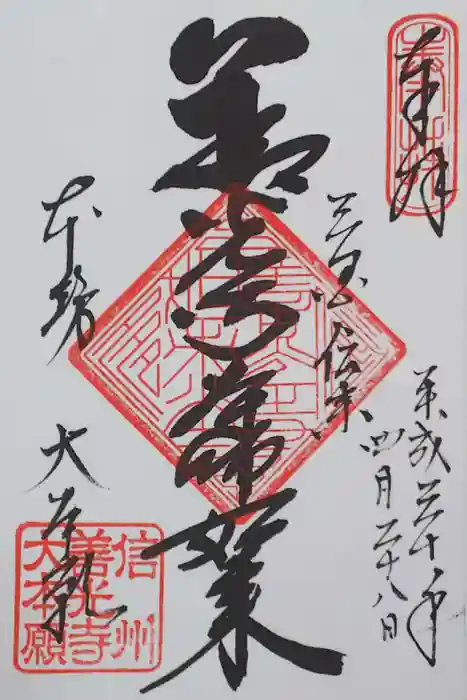 奉拝
平成三十年
四月二十八日
三国伝来
善光寺如来
本坊
大本願
信州
善光寺
大本願